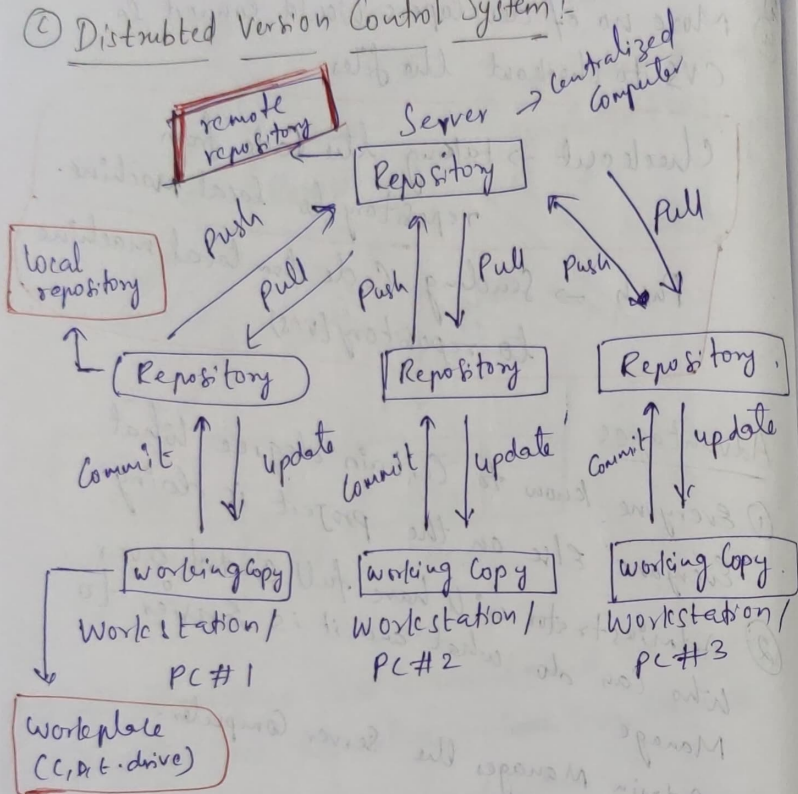 (C) Distrubted Version Control System :-
remote
repository
Server → Centralized
Computer
Repository
Push
Pull
Push
Pull
Push
Pull
Local
repository
Repository
Repository
Repository.
Commit
update
Commit
update
Commit
update
Working Copy
Working Copy
Working Copy.
Workstation/
PC#1
Workstation/
PC#2
Workstation/
PC#3
Workplace